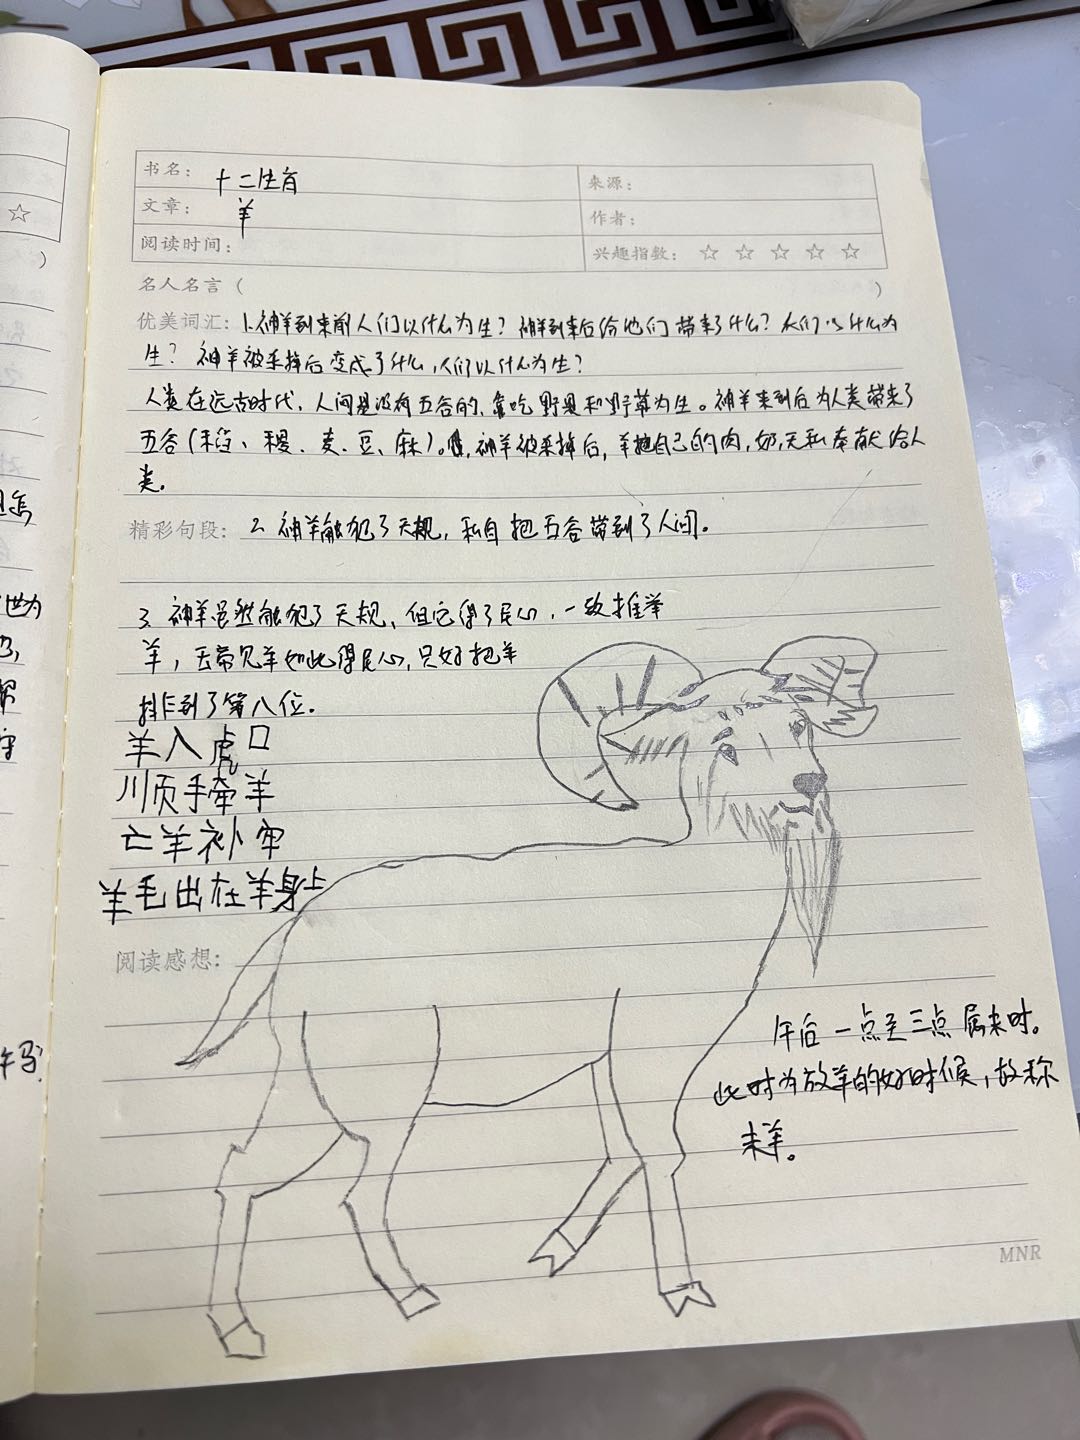 书名：十二生肖
来源：
文章：羊
作者：
阅读时间：
兴趣指数：☆ ☆ ☆ ☆ ☆
名人名言（ ）
优美词汇：1.神羊到来前人们以什么为生？神羊到来后给他们带来了什么？人们以什么为
生？神羊被采掉后变成了什么，人们以什么为生？
人类在远古时代，人间是没有五谷的，靠吃野果和野草为生。神羊来到后为人类带来了
五谷（稻、稷、麦、豆、麻）。神羊被采掉后，羊把自己的肉，奶，无私奉献给人
类。
精彩句段：2.神羊触犯了天规，私自把五谷带到了人间。
3.神羊虽然触犯了天规，但它得了民心，一致推举
羊，玉帝见羊如此得民心，只好把羊
排到了第八位。
羊入虎口
顺手牵羊
亡羊补牢
羊毛出在羊身上
阅读感想：
午后一点至三点属未时。
此时为放羊的好时候，故称
未羊。
MNR
世为
午马